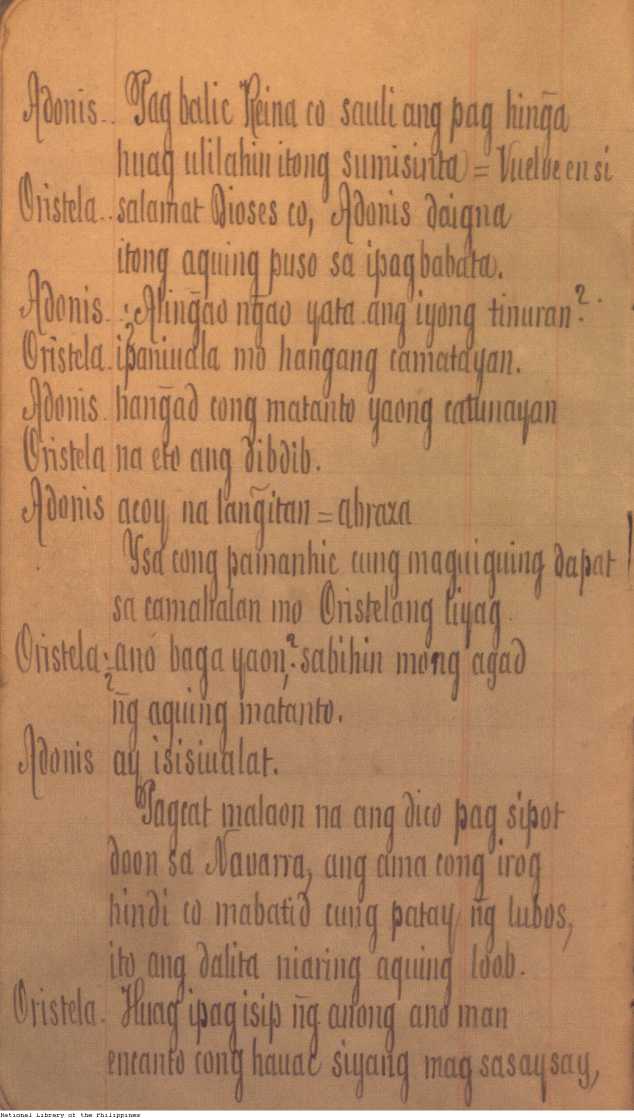 Adonis.. Pag balic Reina co sauli ang pag hing̃a
huag ulilahin itong sumisinta = Vuelve en si
Oristela.. salamat Dioses co, Adonis daigna
itong aquing puso sa ipagbabata.
Adonis.. ¿Aling̃ao ng̃ao yata ang iyong tinuran?
Oristela. ipaniuala mo hangang camatayan.
Adonis. hang̃ad cong matanto yaong catunayan
Oristela na eto ang dibdib.
Adonis acoy na lang̃itan = abraza
Ysa cong pamanhic cung maguiguing dapat
sa camahalan mo Oristelang liyag.
Oristela ¿ano baga yaon? sabihin mong agad
ñg aquing matanto.
Adonis ay isisiualat.
Pagcat malaon na ang dico pag sipot
doon sa Navarra, ang ama cong irog
hindi co mabatid cung patay ñg lubos,
ito ang dalita niaring aquing loob.
Oristela. Huag ipag isip ñg anong ano man
encanto cong hauac siyang mag sasaysay,
National Library of the Philippines